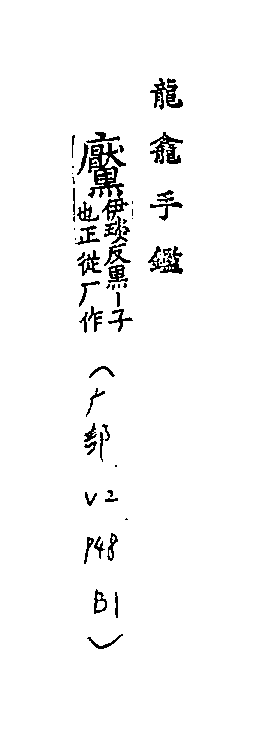 龍龕手鑑
黶伊琰反黑丨子
也正從厂作
（广部.V2.P48.B1）